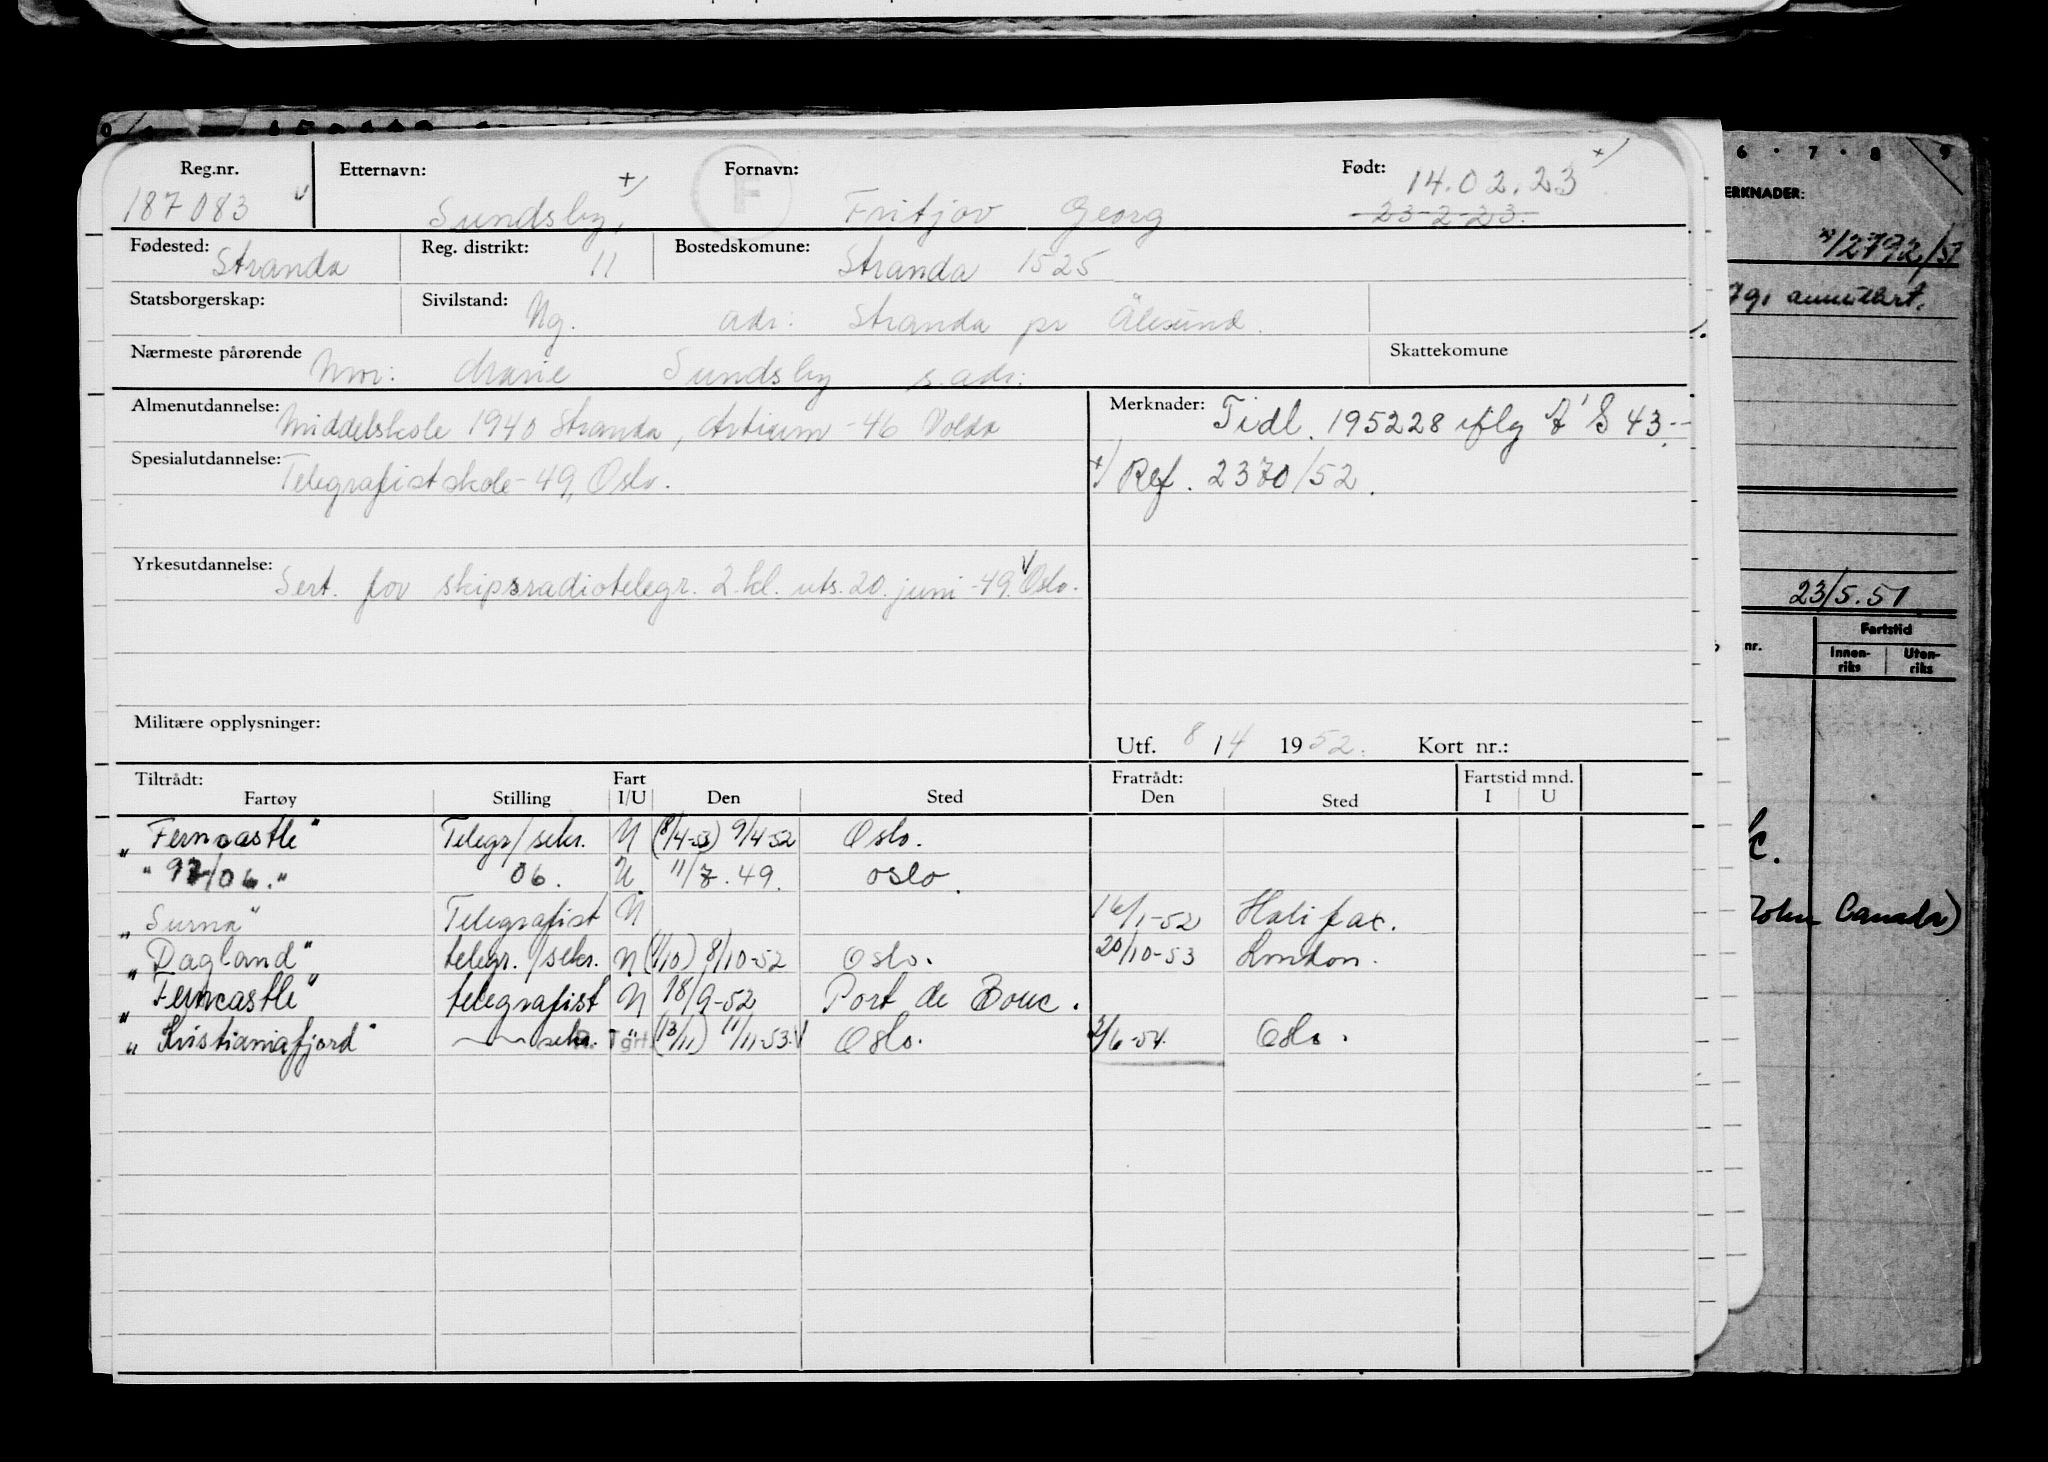 Reg.nr. Etternavn: F Fornavn: Født:
187083 Sundsby, +) Fritjov Georg 14.02.23 +)
23-2-23.
Fødested: Stranda Reg. distrikt: 11 Bostedskomune: Stranda 1525
Statsborgerskap: Sivilstand: Ug. adr: Stranda pr Ålesund.
Nærmeste pårørende Mor: Marie Sundsby s. adr. Skattekomune
Almenutdannelse: Middelskole 1940 Stranda, Artium -46 Volda
Merknader: Tidl. 195228 iflg A'S 43.
Spesialutdannelse: Telegrafistskole -49, Oslo.
+) Ref. 2370/52.
Yrkesutdannelse: Sert. for skipsradiotelegr. 2. kl. uts. 20. juni -49. Oslo.
Militære opplysninger:
Utf. 8/4 1952. Kort nr.:
Tiltrådt: Fart Fratrådt: Fartstid mnd.
Fartøy Stilling I/U Den Sted Den Sted I U
"Ferncastle" Telegr/sekr. U (8/4-53) 9/4-52 Oslo.
"97/06." 06. U 11/7.49. oslo.
"Surna" Telegrafist U 16/1-52 Halifax.
"Dagland" telegr./sekr. U (1/10) 8/10-52 Oslo. 20/10-53 London.
"Ferncastle" telegrafist U 18/9-52 Port de Bouc.
"Kristianiafjord" sekr. R. Tgrf. " (13/11) 11/11-53. Oslo. 2/6-54. Oslo.
6 7 8 9
ERKNADER:
12792/51
annullert.
23/5.51
nr. Fartstid
Innen-riks Uten-riks
John Canada)